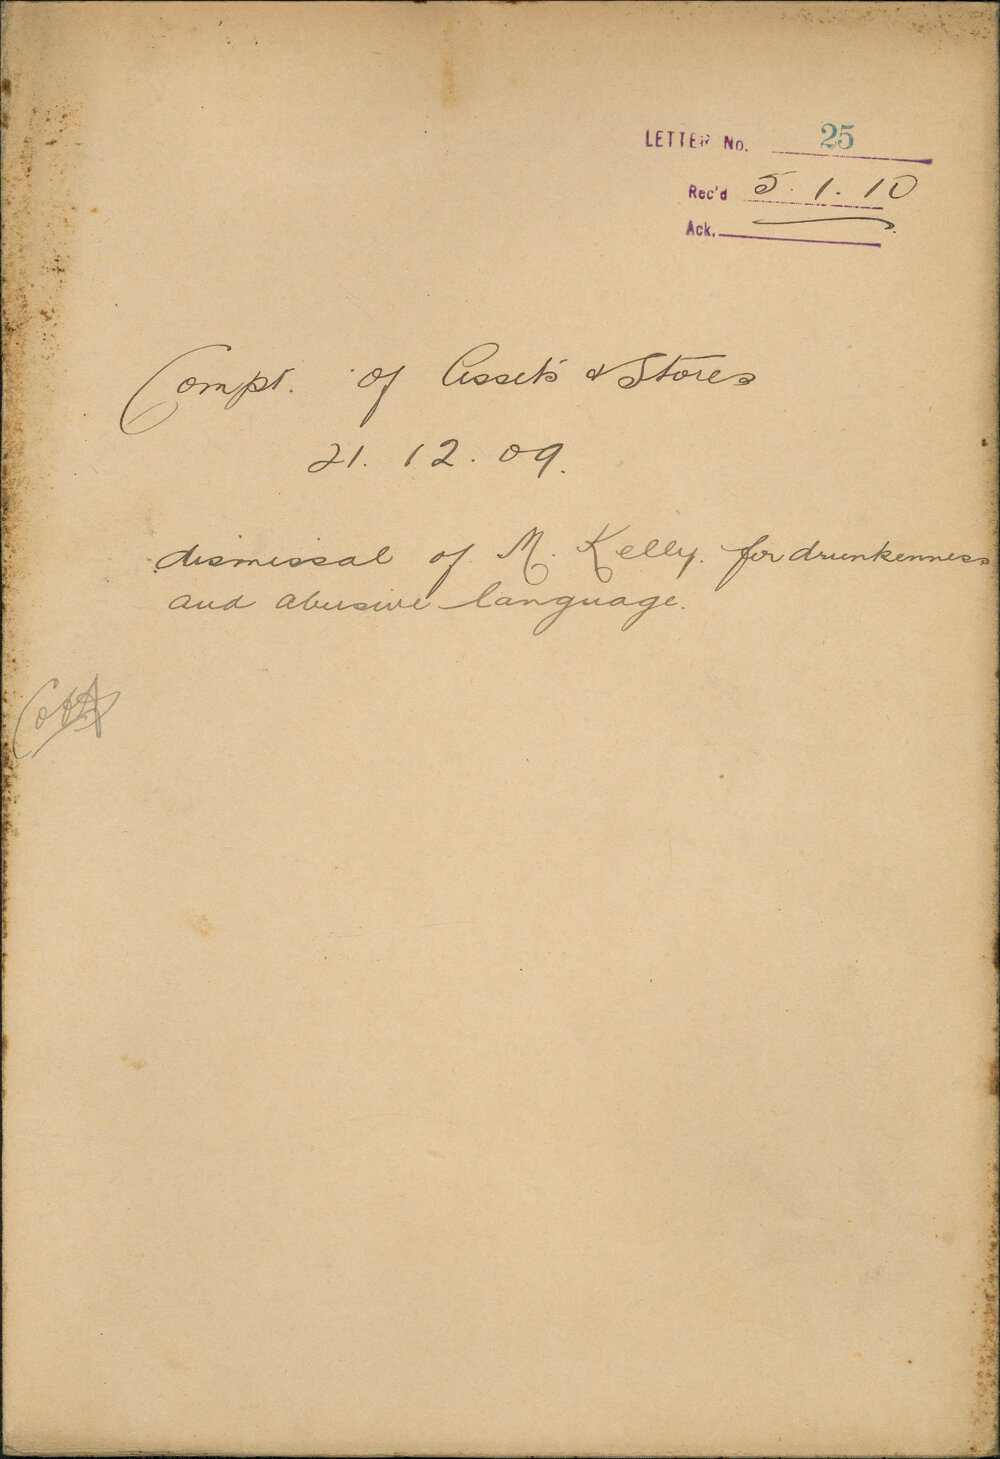 LETTER No. 25
Rec'd 5.1.10
Ack.
Compt. of Assets & Stores
21.12.09.
dismissal of M. Kelly. for drunkenness
and abusive language.